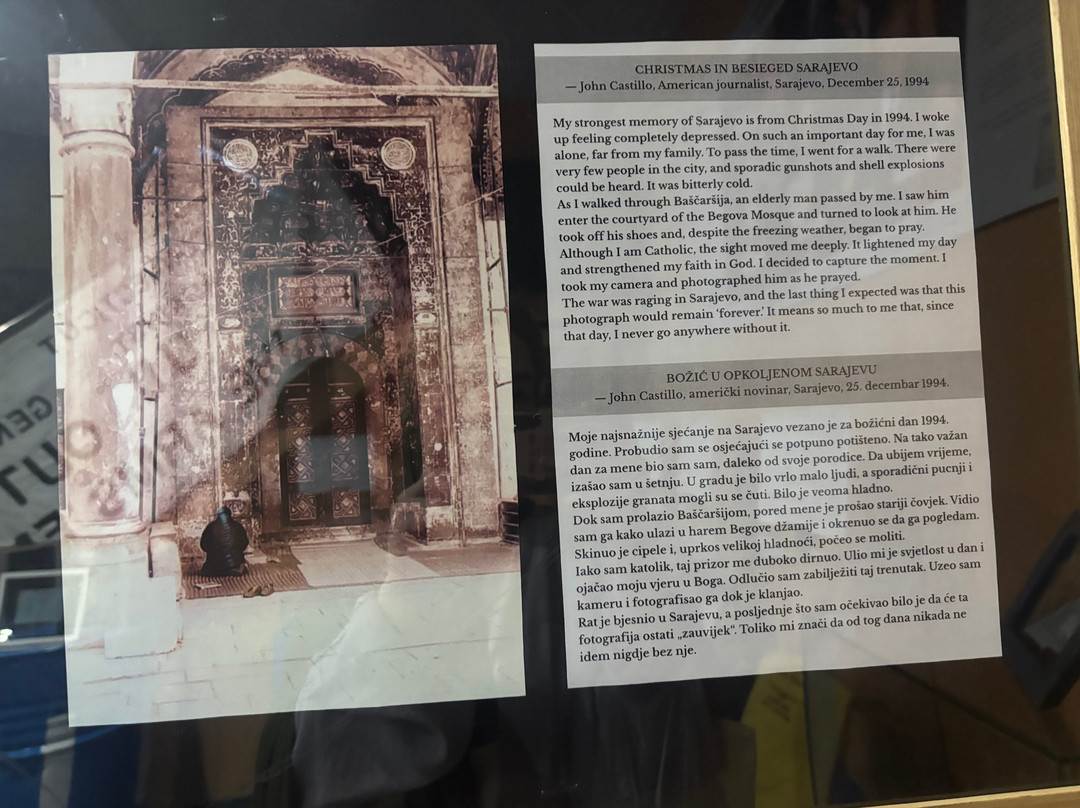 CHRISTMAS IN BESIEGED SARAJEVO
— John Castillo, American journalist, Sarajevo, December 25, 1994
My strongest memory of Sarajevo is from Christmas Day in 1994. I woke
up feeling completely depressed. On such an important day for me, I was
alone, far from my family. To pass the time, I went for a walk. There were
very few people in the city, and sporadic gunshots and shell explosions
could be heard. It was bitterly cold.
As I walked through Baščaršija, an elderly man passed by me. I saw him
enter the courtyard of the Begova Mosque and turned to look at him. He
took off his shoes and, despite the freezing weather, began to pray.
Although I am Catholic, the sight moved me deeply. It lightened my day
and strengthened my faith in God. I decided to capture the moment. I
took my camera and photographed him as he prayed.
The war was raging in Sarajevo, and the last thing I expected was that this
photograph would remain ‘forever.’ It means so much to me that, since
that day, I never go anywhere without it.
BOŽIĆ U OPKOLJENOM SARAJEVU
— John Castillo, američki novinar, Sarajevo, 25. decembar 1994.
Moje najsnažnije sjećanje na Sarajevo vezano je za božićni dan 1994.
godine. Probudio sam se osjećajući se potpuno potišteno. Na tako važan
dan za mene bio sam sam, daleko od svoje porodice. Da ubijem vrijeme,
izašao sam u šetnju. U gradu je bilo vrlo malo ljudi, a sporadični pucnji i
eksplozije granata mogli su se čuti. Bilo je veoma hladno.
Dok sam prolazio Baščaršijom, pored mene je prošao stariji čovjek. Vidio
sam ga kako ulazi u harem Begove džamije i okrenuo se da ga pogledam.
Skinuo je cipele i, uprkos velikoj hladnoći, počeo se moliti.
Iako sam katolik, taj prizor me duboko dirnuo. Ulio mi je svjetlost u dan i
ojačao moju vjeru u Boga. Odlučio sam zabilježiti taj trenutak. Uzeo sam
kameru i fotografisao ga dok je klanjao.
Rat je bjesnio u Sarajevu, a posljednje što sam očekivao bilo je da će ta
fotografija ostati „zauvijek“. Toliko mi znači da od tog dana nikada ne
idem nigdje bez nje.